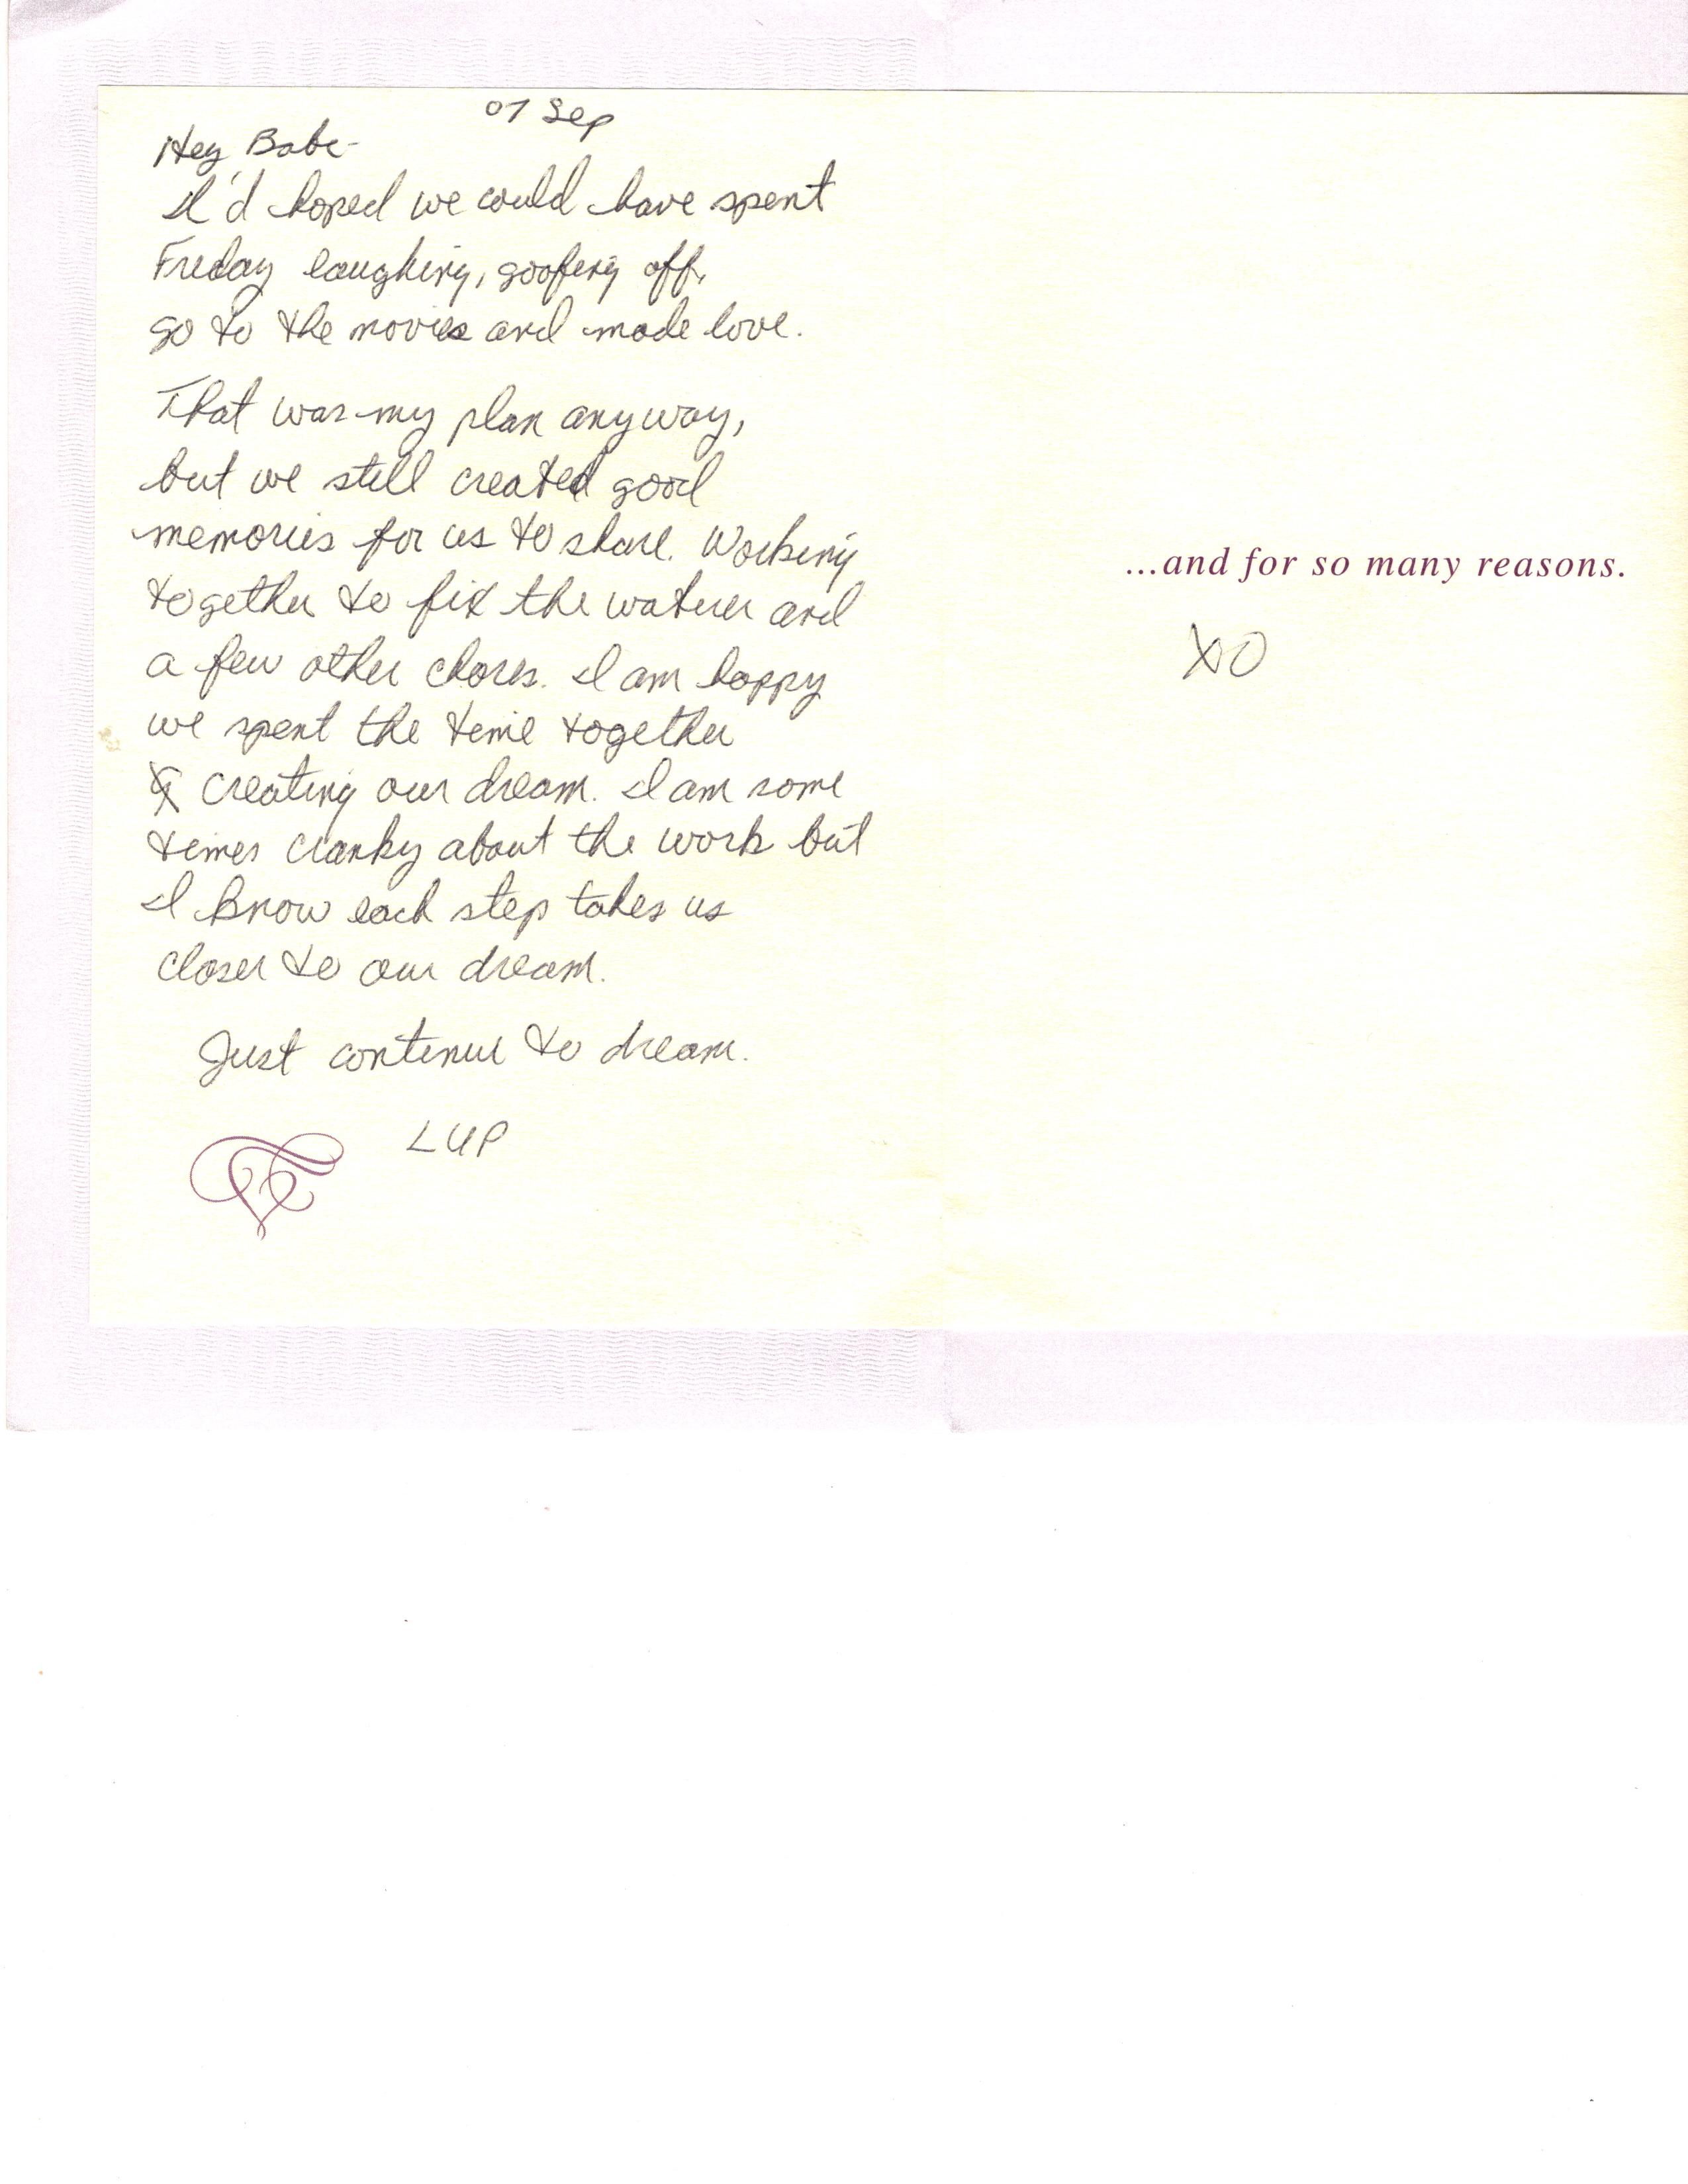 07 Sep
Hey Babe-
I'd hoped we could have spent
Friday laughing, goofing off,
go to the movies and made love.
That was my plan anyway,
but we still created good
memories for us to share. Working
together to fix the waterer and
a few other chores. I am happy
we spent the time together
& creating our dream. I am some
times cranky about the work but
I know each step takes us
closer to our dream.
Just continue to dream.
LUP
...and for so many reasons.
XO